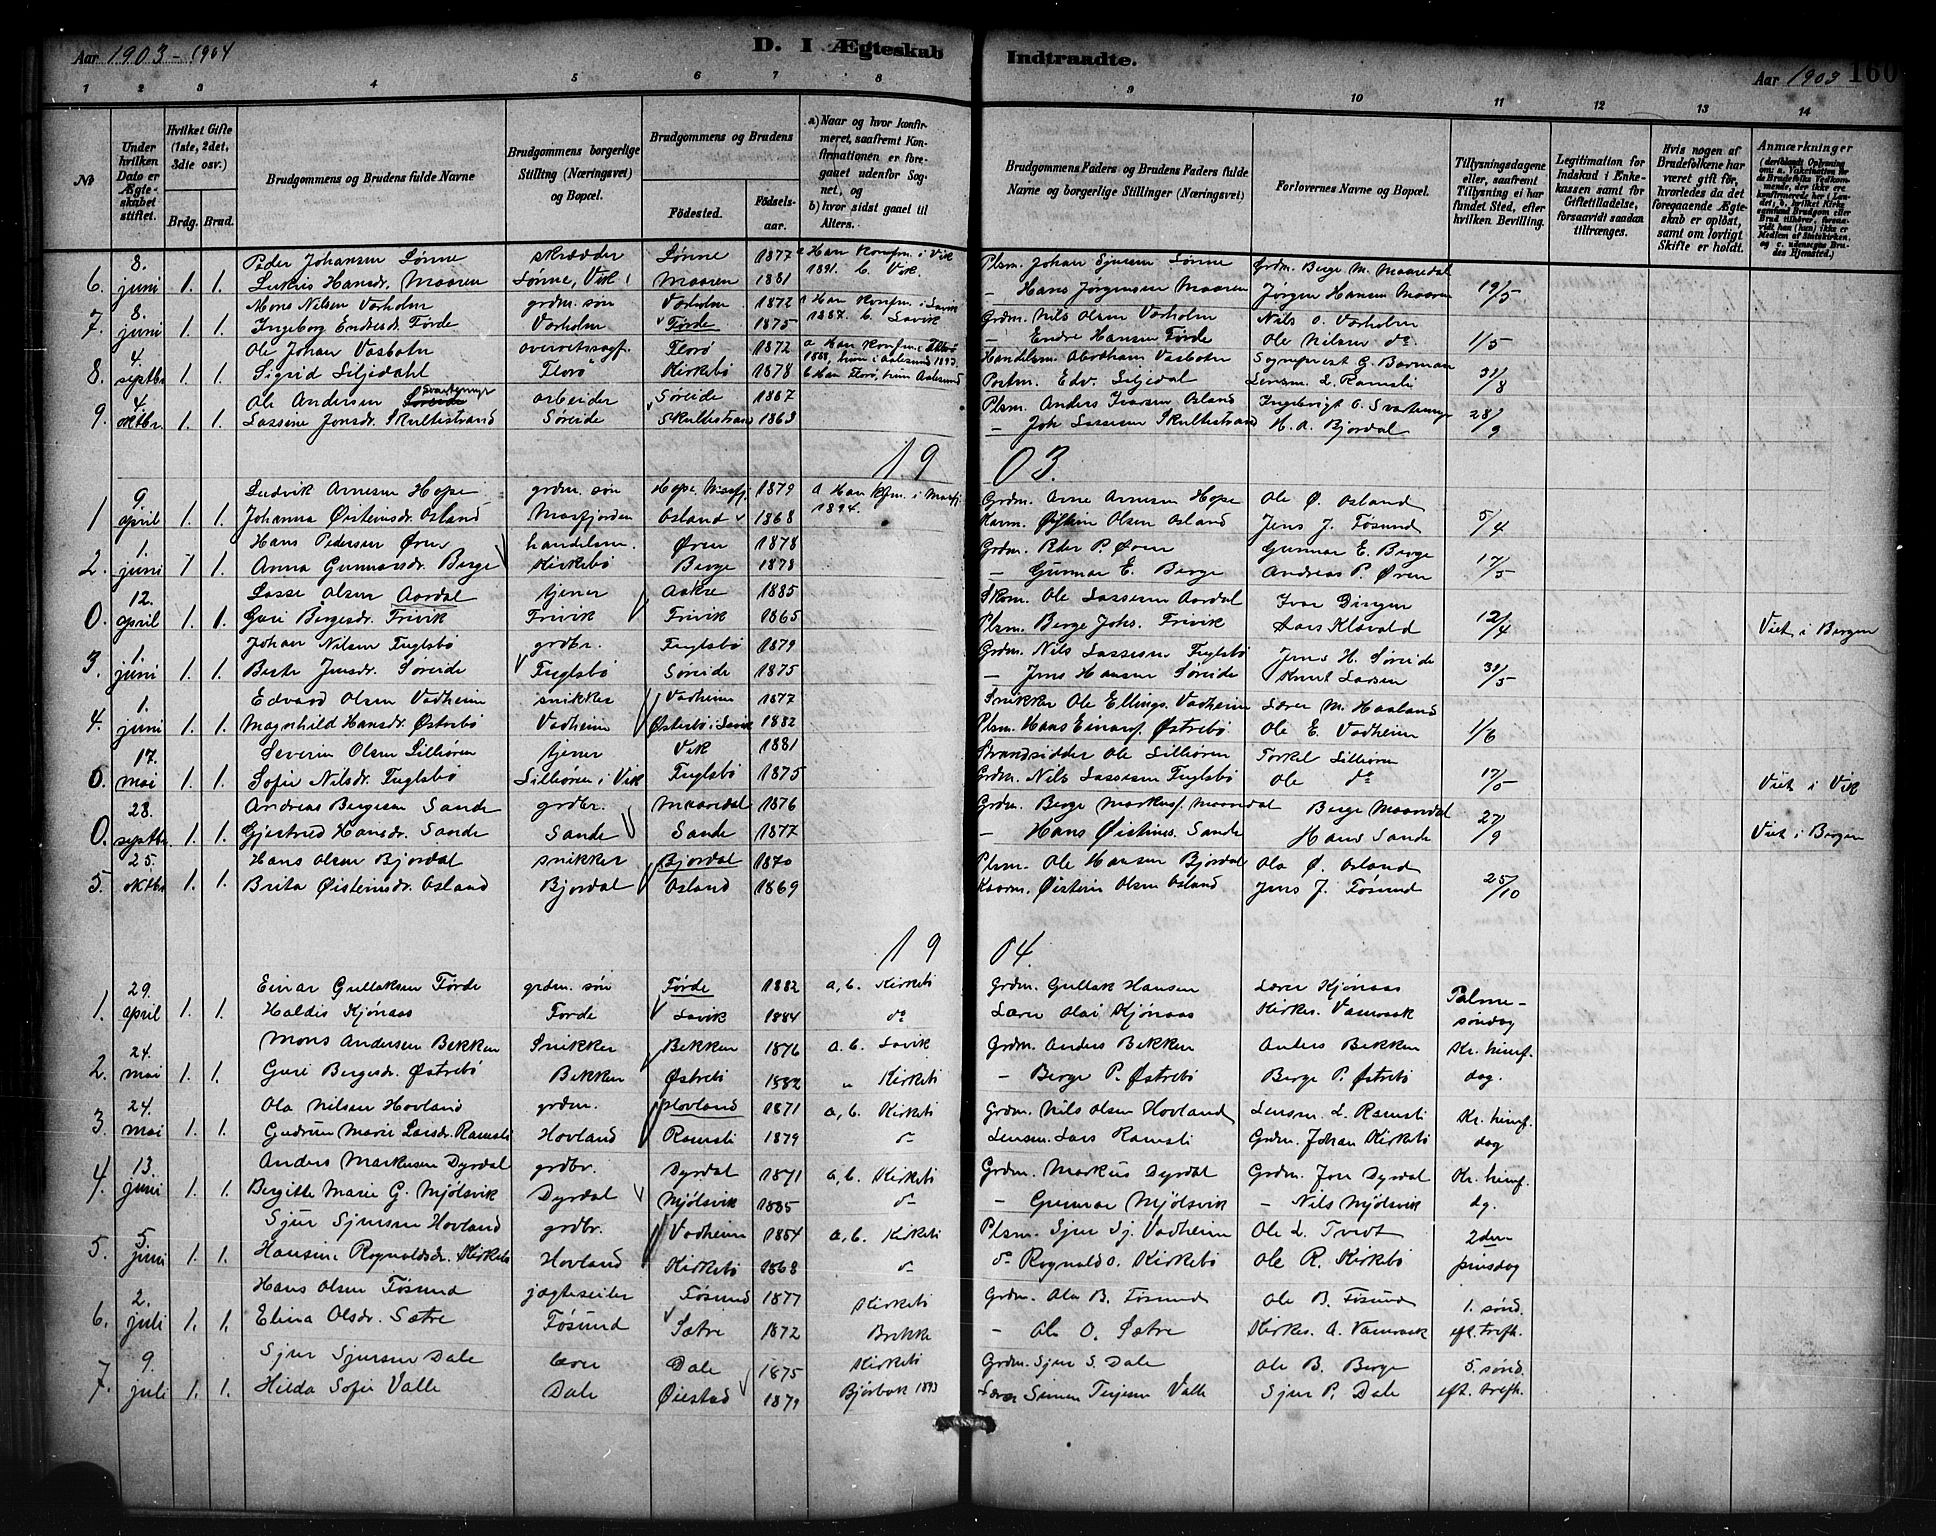 Aar 1903-1904
D. I Ægteskab Indtraadte.
Aar 1903 160
1 2 3 4 5 6 7 8 9 10 11 12 13 14
No
Under hvilken Dato er Ægteskabet stiftet.
Hvilket Gifte (1ste, 2det, 3die osv.)
Brdg. Brud.
Brudgommens og Brudens fulde Navne
Brudgommens borgerlige Stilling (Næringsvei) og Bopæl.
Brudgommens og Brudens
Fødested. Fødselsaar.
a) Naar og hvor konfirmeret, saafremt Konfirmationen er foregaaet udenfor Sognet, og
b) hvor sidst gaaet til Alters.
Brudgommens Faders og Brudens Faders fulde Navne og borgerlige Stillinger (Næringsvei)
Forlovernes Navne og Bopæl.
Tillysningsdagene eller, saafremt Tillysning ei har fundet Sted, efter hvilken Bevilling.
Legitimation for Indskud i Enkekassen samt for Giftetilladelse, forsaavidt saadan tiltrænges.
Hvis nogen af Brudefolkene har været gift før, hvorledes da det foregaaende Ægteskab er opløst, samt om lovligt Skifte er holdt.
Anmærkninger
8. Peder Johansen Lønne skrædder Lønne 1877 a Han konfm. i Vik Plsm. Johan Sjursen Lønne Grdm. Berge M. Maaredal
6. juni 1. 1. Hansdr. Maaren Lønne, Vik Maaren 1881 1891. b. Vik - Hans Jørgensen Maaren Jørgen Hansen Maaren 19/5
8. Mons Nilsen Varholm grdm. søn Varholm 1872 a Han konfm. i Lavik Grdm. Nils Olsen Varholm Nils O. Varholm
7. juni 1. 1. Ingeborg Endresdr. Førde Varholm Førde 1875 1887. b. Lavik - Endre Hansen Førde Ole Nilsen do 1/5
4. Ole Johan Vasbotn overretssagf. Florø 1872 a Han konfm. i Florø Handelsm. Abraham Vasbotn Sogneprest G. Barman
8. septbr 1. 1. Sigrid Liljedahl Florø Kirkebø 1878 b Han Florø, hun Aalesund Postm. Edv. Liljedal Lensm. L. Ramsli 31/8
4. Ole Andersen Svartemyr arbeider Søreide 1867 Plsm. Anders Ivarsen Osland Ingebrigt O. Svartemyr
9. oktbr. 1. 1. Lassine Jonsdr. Skultestrand Søreide Skultestrand 1863 - Joh. Lassesen Skultestrand H. A. Bjordal 28/9
1903.
9. Ludvik Arnesen Hope grdm. søn Hope, Masfj. 1879 a Han kfm. i Masfj. Grdm. Arne Arnesen Hope Ole Ø. Osland
1 april 1. 1. Johanna Øisteinsdr. Osland Masfjorden Osland 1868 1894. Øistein Olsen Osland Jens J. Føsund 5/4
1. Hans Pedersen Øren handelsm. Øren 1878 Grdm. Peder P. Øren Gunnar E. Berge
2. juni 1 1. Anna Gunnarsdr. Berge Kirkebø Berge 1878 - Gunnar E. Berge Andreas P. Øren 17/5
12. Lasse Olsen Aardal tjener Aakre 1885 Skom. Ole Lassesen Aardal Ivar
0. april 1. 1. Guri Bergesdr. Frivik Frivik Frivik 1865 Plsm. Berge Johs. Frivik Lars Kløvald 12/4 Viet i Bergen
1. Johan Nilsen Fuglsbø grdbr. Fuglsbø 1879 Grdm. Nils Lassesen Fuglsbø Jens H. Søreide
3. juni 1. 1. Berte Jensdr. Søreide Fuglsbø Søreide 1875 - Jens Hansen Søreide Knut Larsen 31/5
1. Edvard Olsen Vadheim snikker Vadheim 1877 Snikker Ole Ellings. Vadheim Lærer M. Haaland
4. juni 1. 1. Magnhild Hansdr. Østrebø Vadheim Østrebø i Lavik 1882 Plsm. Hans Einars. Østrebø Ole E. Vadheim 1/6
17. Severin Olsen Lilliøren tjener Vik 1881 Strandsidder Ole Lilliøren Torkel Lilliøren
0. mai 1. 1. Sofie Nilsdr. Fuglsbø Lilliøren i Vik Fuglsbø 1875 Grdm. Nils Lassesen Fuglsbø Ole do 17/5 Viet i Vik
28. Andreas Bergesen Sande grdbr. Maaredal 1876 Grdm. Berge Markus. Maaredal Berge Maaredal
0. septbr. 1. 1. Gjertrud Hansdr. Sande Sande Sande 1877 - Hans Øisteins. Sande Hans Sande 27/9 Viet i Bergen
25. Hans Olsen Bjordal snikker Bjordal 1870 Plsm. Ole Hansen Bjordal Ola Ø. Osland
5. oktbr 1. 1. Brita Øisteinsdr. Osland Bjordal Osland 1869 Øistein Olsen Osland Jens J. Føsund 25/10
1904
29. Einar Gullaksen Førde grdm. søn Førde 1882 a, b. Kirkebø Grdm. Gullak Hansen Lærer Kjønaas Palme-
1. april 1. 1. Haldis Kjønaas Førde Lavik 1884 do Lærer Olai Kjønaas Kirkes. Vamraak søndag
24. Mons Andersen Bekken Snikker Bekken 1876 a. b. Lavik Grdm. Anders Bekken Anders Bekken Kr. himf.
2. mai 1. 1. Guri Bergesdr. Østrebø Bekken Østrebø 1882 " Kirkebø - Berge P. Østrebø Berge P. Østrebø dag.
24. Ola Nilsen Hovland grdm. Hovland 1871 a, b. Kirkebø Grdm. Nils Olsen Hovland Lensm. L. Ramsli Kr. himf.
3. mai 1. 1. Gudrun Marie Larsdr. Ramsli Hovland Ramsli 1879 do Lensm. Lars Ramsli Grdm. Johan Kirkebø dag
13. Anders Markusen Dyrdal grdbr. Dyrdal 1871 a, b. Kirkebø Grdm. Markus Dyrdal Grdm. Joh. Dyrdal Kr. himf.
4. juni 1. 1. Bergitte Marie G. Mjølsvik Dyrdal Mjølsvik 1885 do - Gunnar Mjølsvik - Nils Mjølsvik dg.
5. Sjur Sjursen Hovland grdbr. Vadheim 1854 a, b. Kirkebø Plsm. Sjur Sj. Vadheim Ole L. Tveit 2den
5. juni 1. 1. Hansine Rognaldsdr. Kirkebø Hovland Kirkebø 1868 do do Rognald O. Kirkebø Ole R. Kirkebø pinsdag
2. Hans Olsen Føsund jægteseiler Føsund 1877 Kirkebø Grdm. Ola B. Føsund Ole B. Føsund 1. sønd.
6. juli 1. 1. Elina Olsdr. Sætre Føsund Sætre 1872 Brekke - Ole O. Sætre Kirkes. A. Vamraak eft. trefh.
9. Sjur Sjursen Dale Dale 1875 Kirkebø Grdm. Sjur S. Dale Ole B. Berge 5. sønd.
7. juli 1. 1. Hilda Sofie Valle Dale Øiestad 1879 1893 Lærer Simen Terjesen Valle Sjur P. Dale eft. trefh.